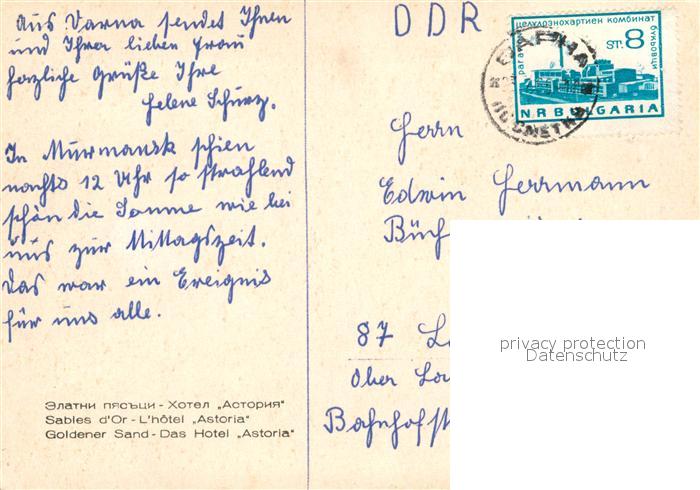 Aus Varna sendet Ihnen
und Ihrer lieben Frau
herzliche Grüße Ihre
Helene Schurz.
In Murmansk schien
nachts 12 Uhr so strahlend
schön die Sonne wie bei
uns zur Mittagszeit.
Das war ein Ereignis
für uns alle.
Златни пясъци - Хотел „Астория"
Sables d'Or - L'hôtel „Astoria"
Goldener Sand - Das Hotel „Astoria"
DDR
целулознохартиен комбинат
букьовци
para
st. 8
NRBULGARIA
ВАРНА
Herrn
Edwin Herrmann
Büch
87 L
Ober
Bahnhofst
privacy protection
Datenschutz